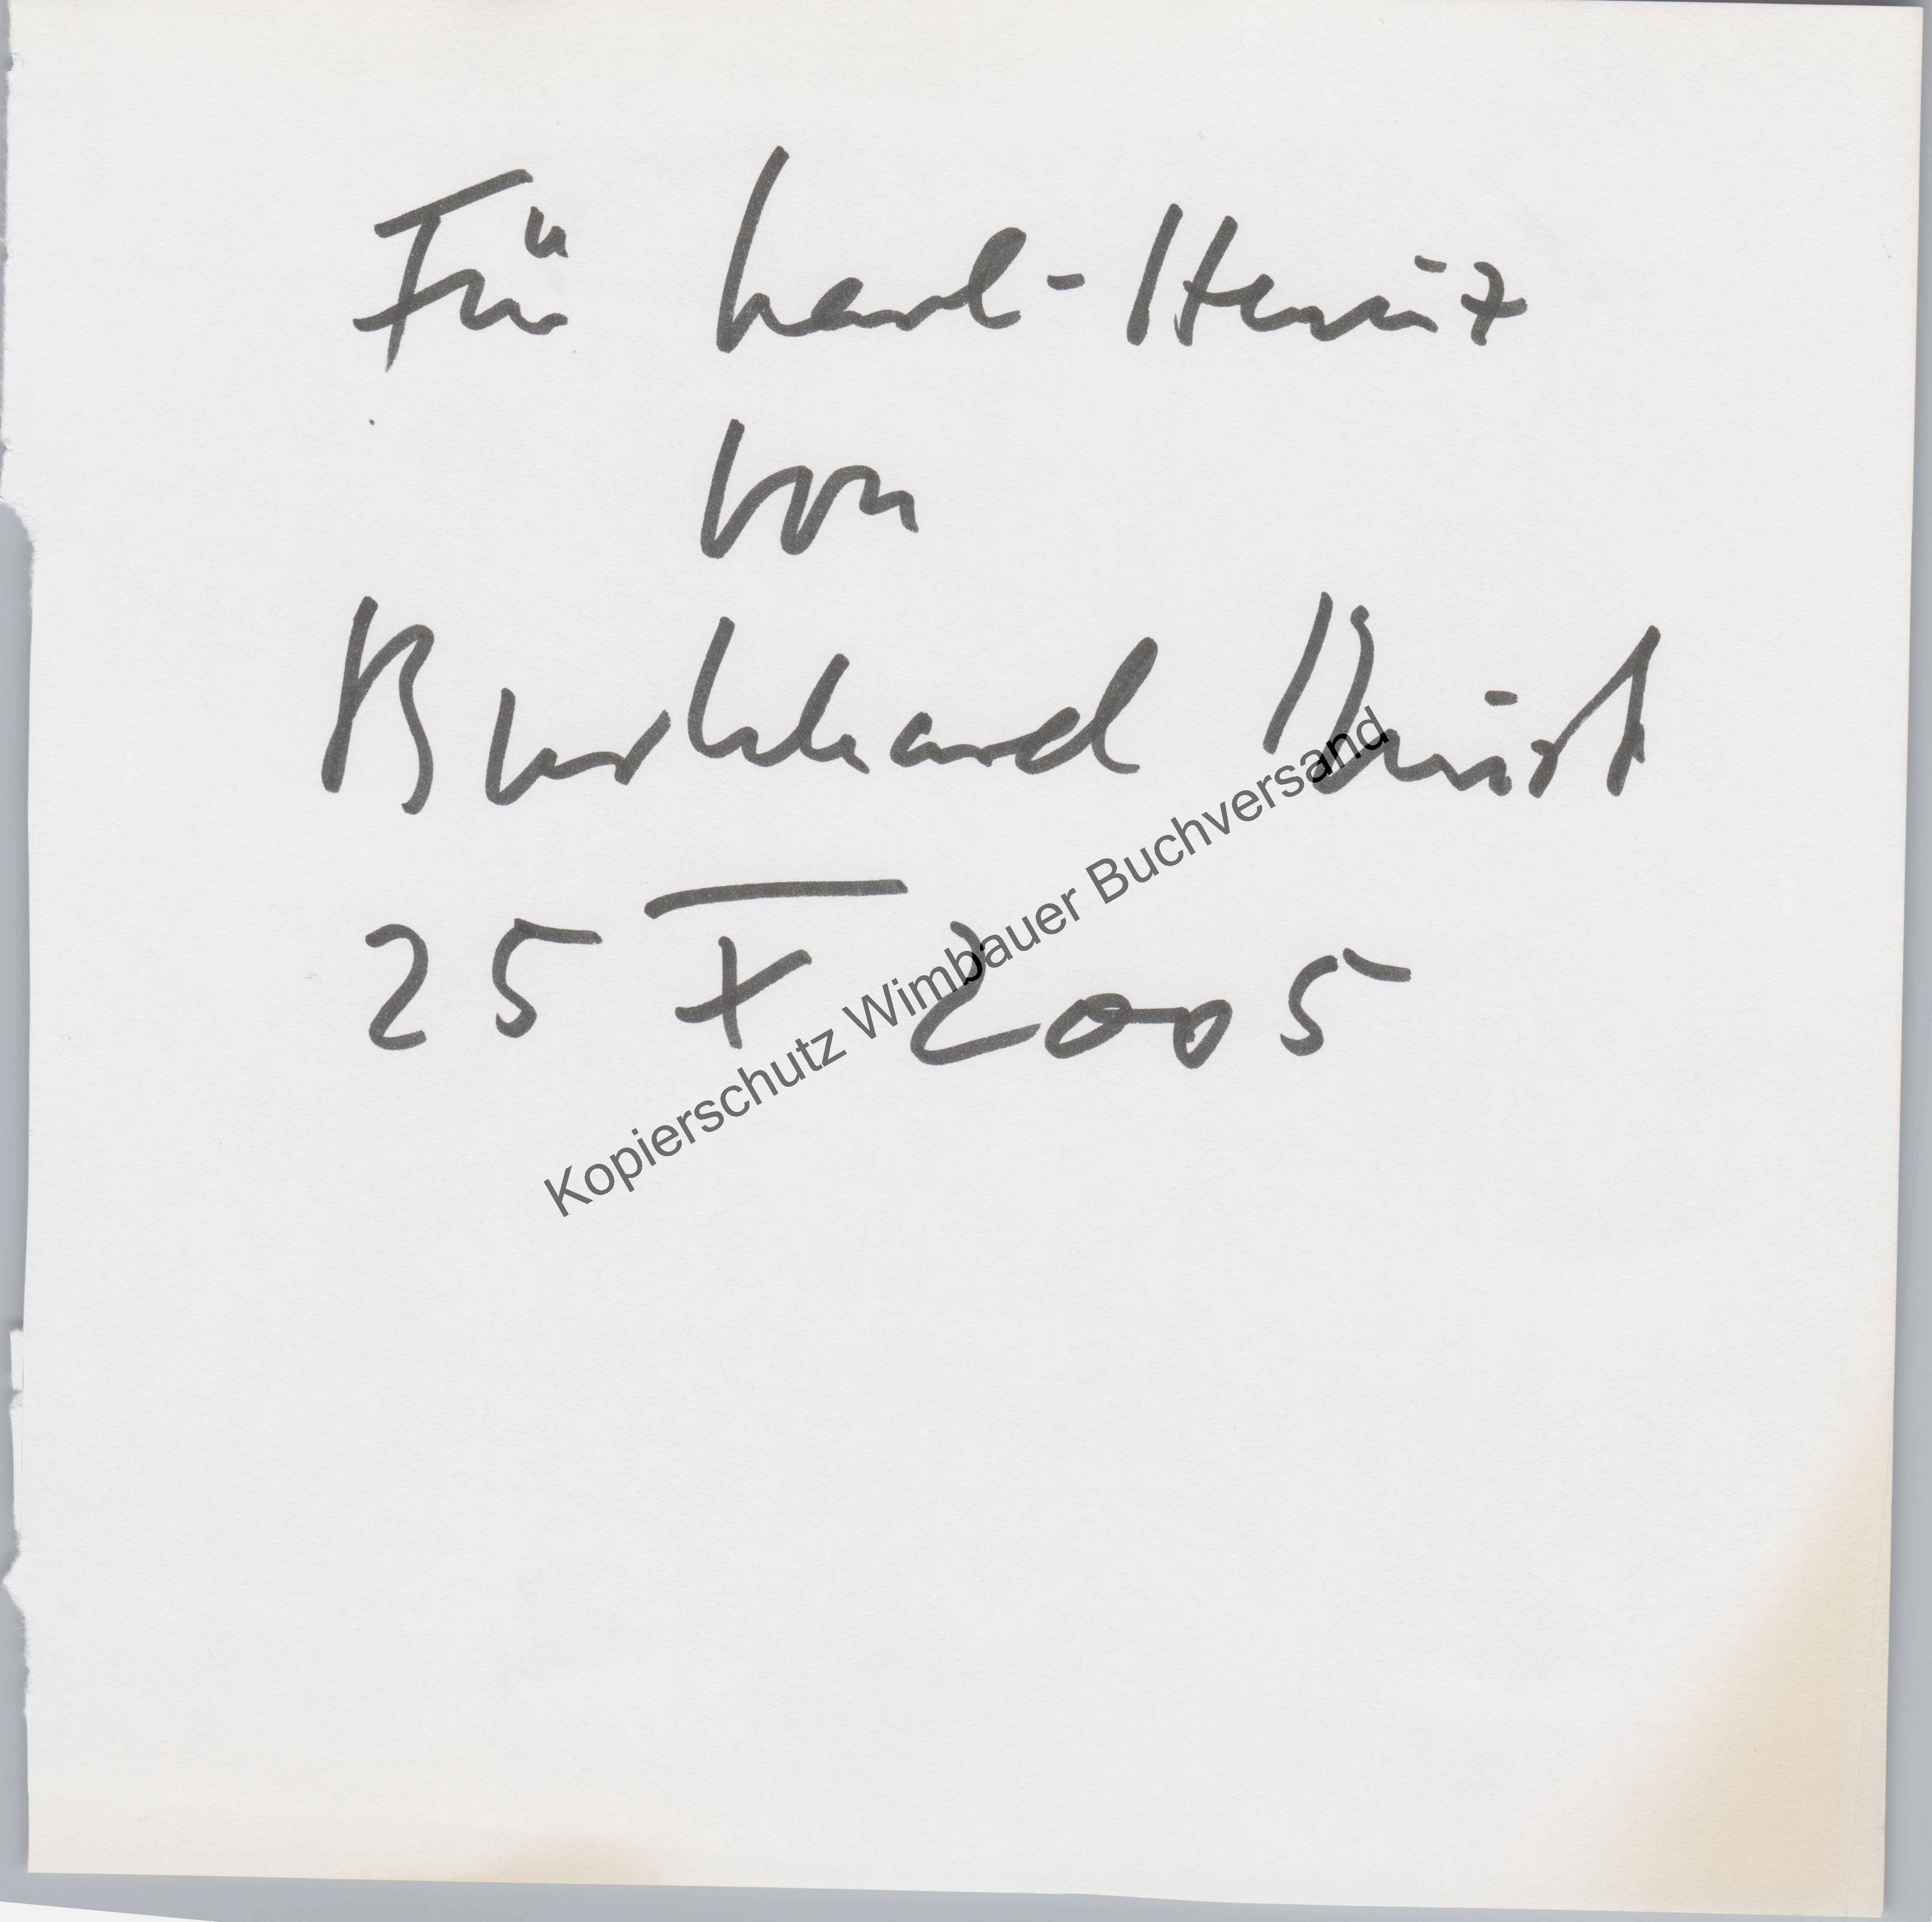 Für Karl-Heinz
von
Burkhard
25 X 2005
Kopierschutz Wimbauer Buchversand